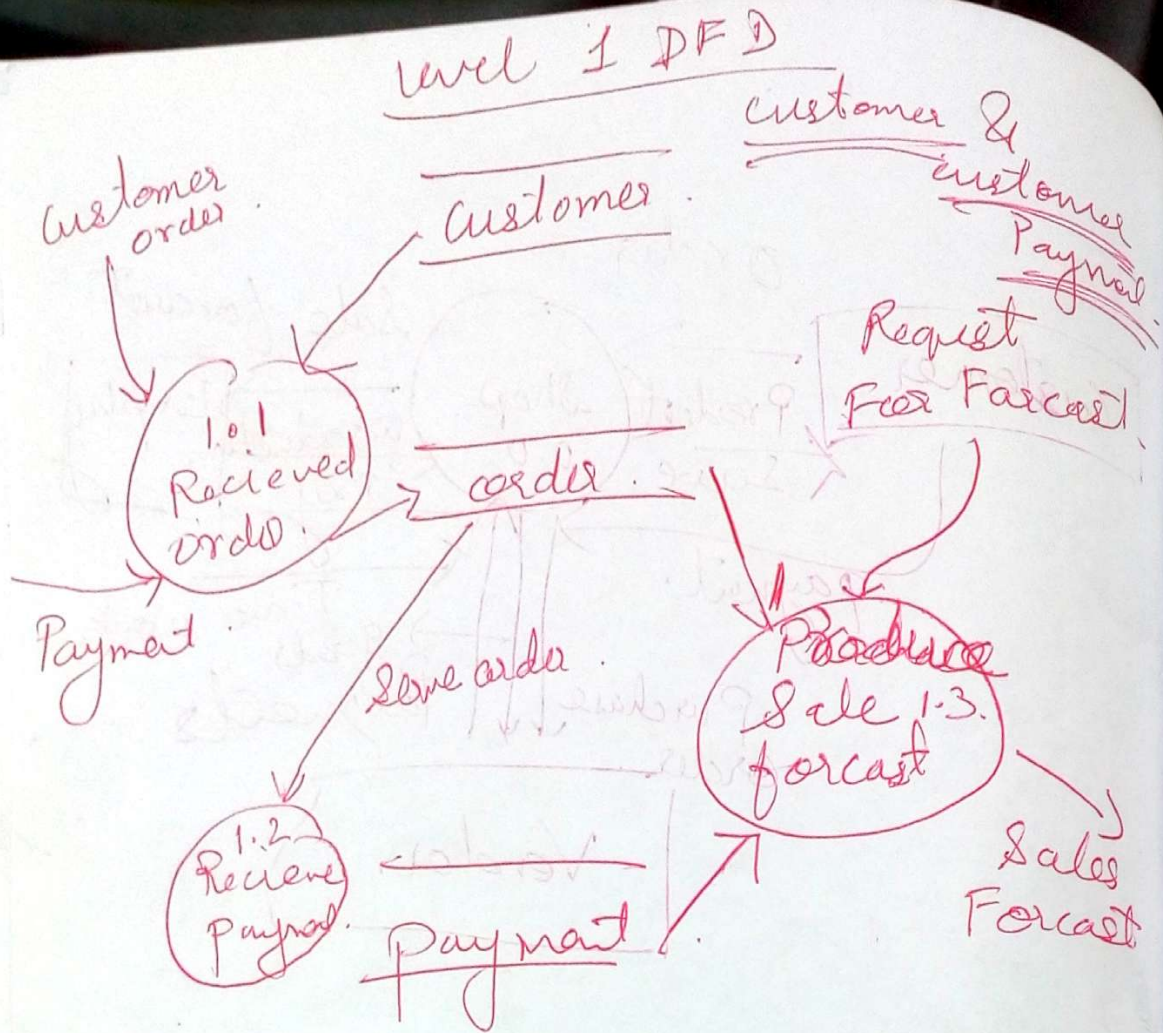 Level 1 DFD
customer &
customer
Paymet
Customer
order.
Customer.
Request
For Farcast.
1.1
Recieved
order.
order.
Payment.
Serve order.
Produce
Sale 1.3.
forcast
1.2
Recieve
paymet.
Payment
Sales
Forcast